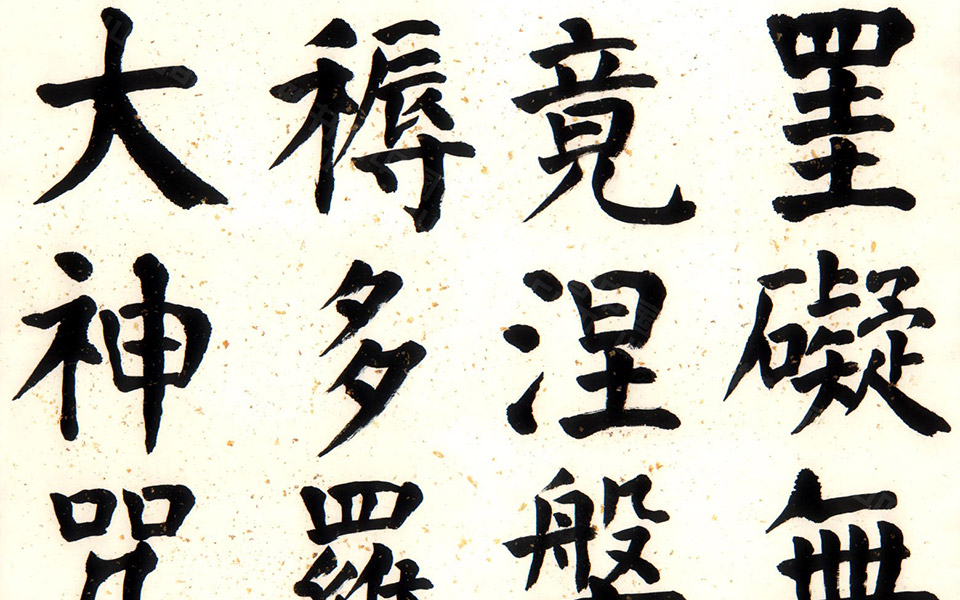 罣礙無
竟涅槃
耨多羅
大神咒